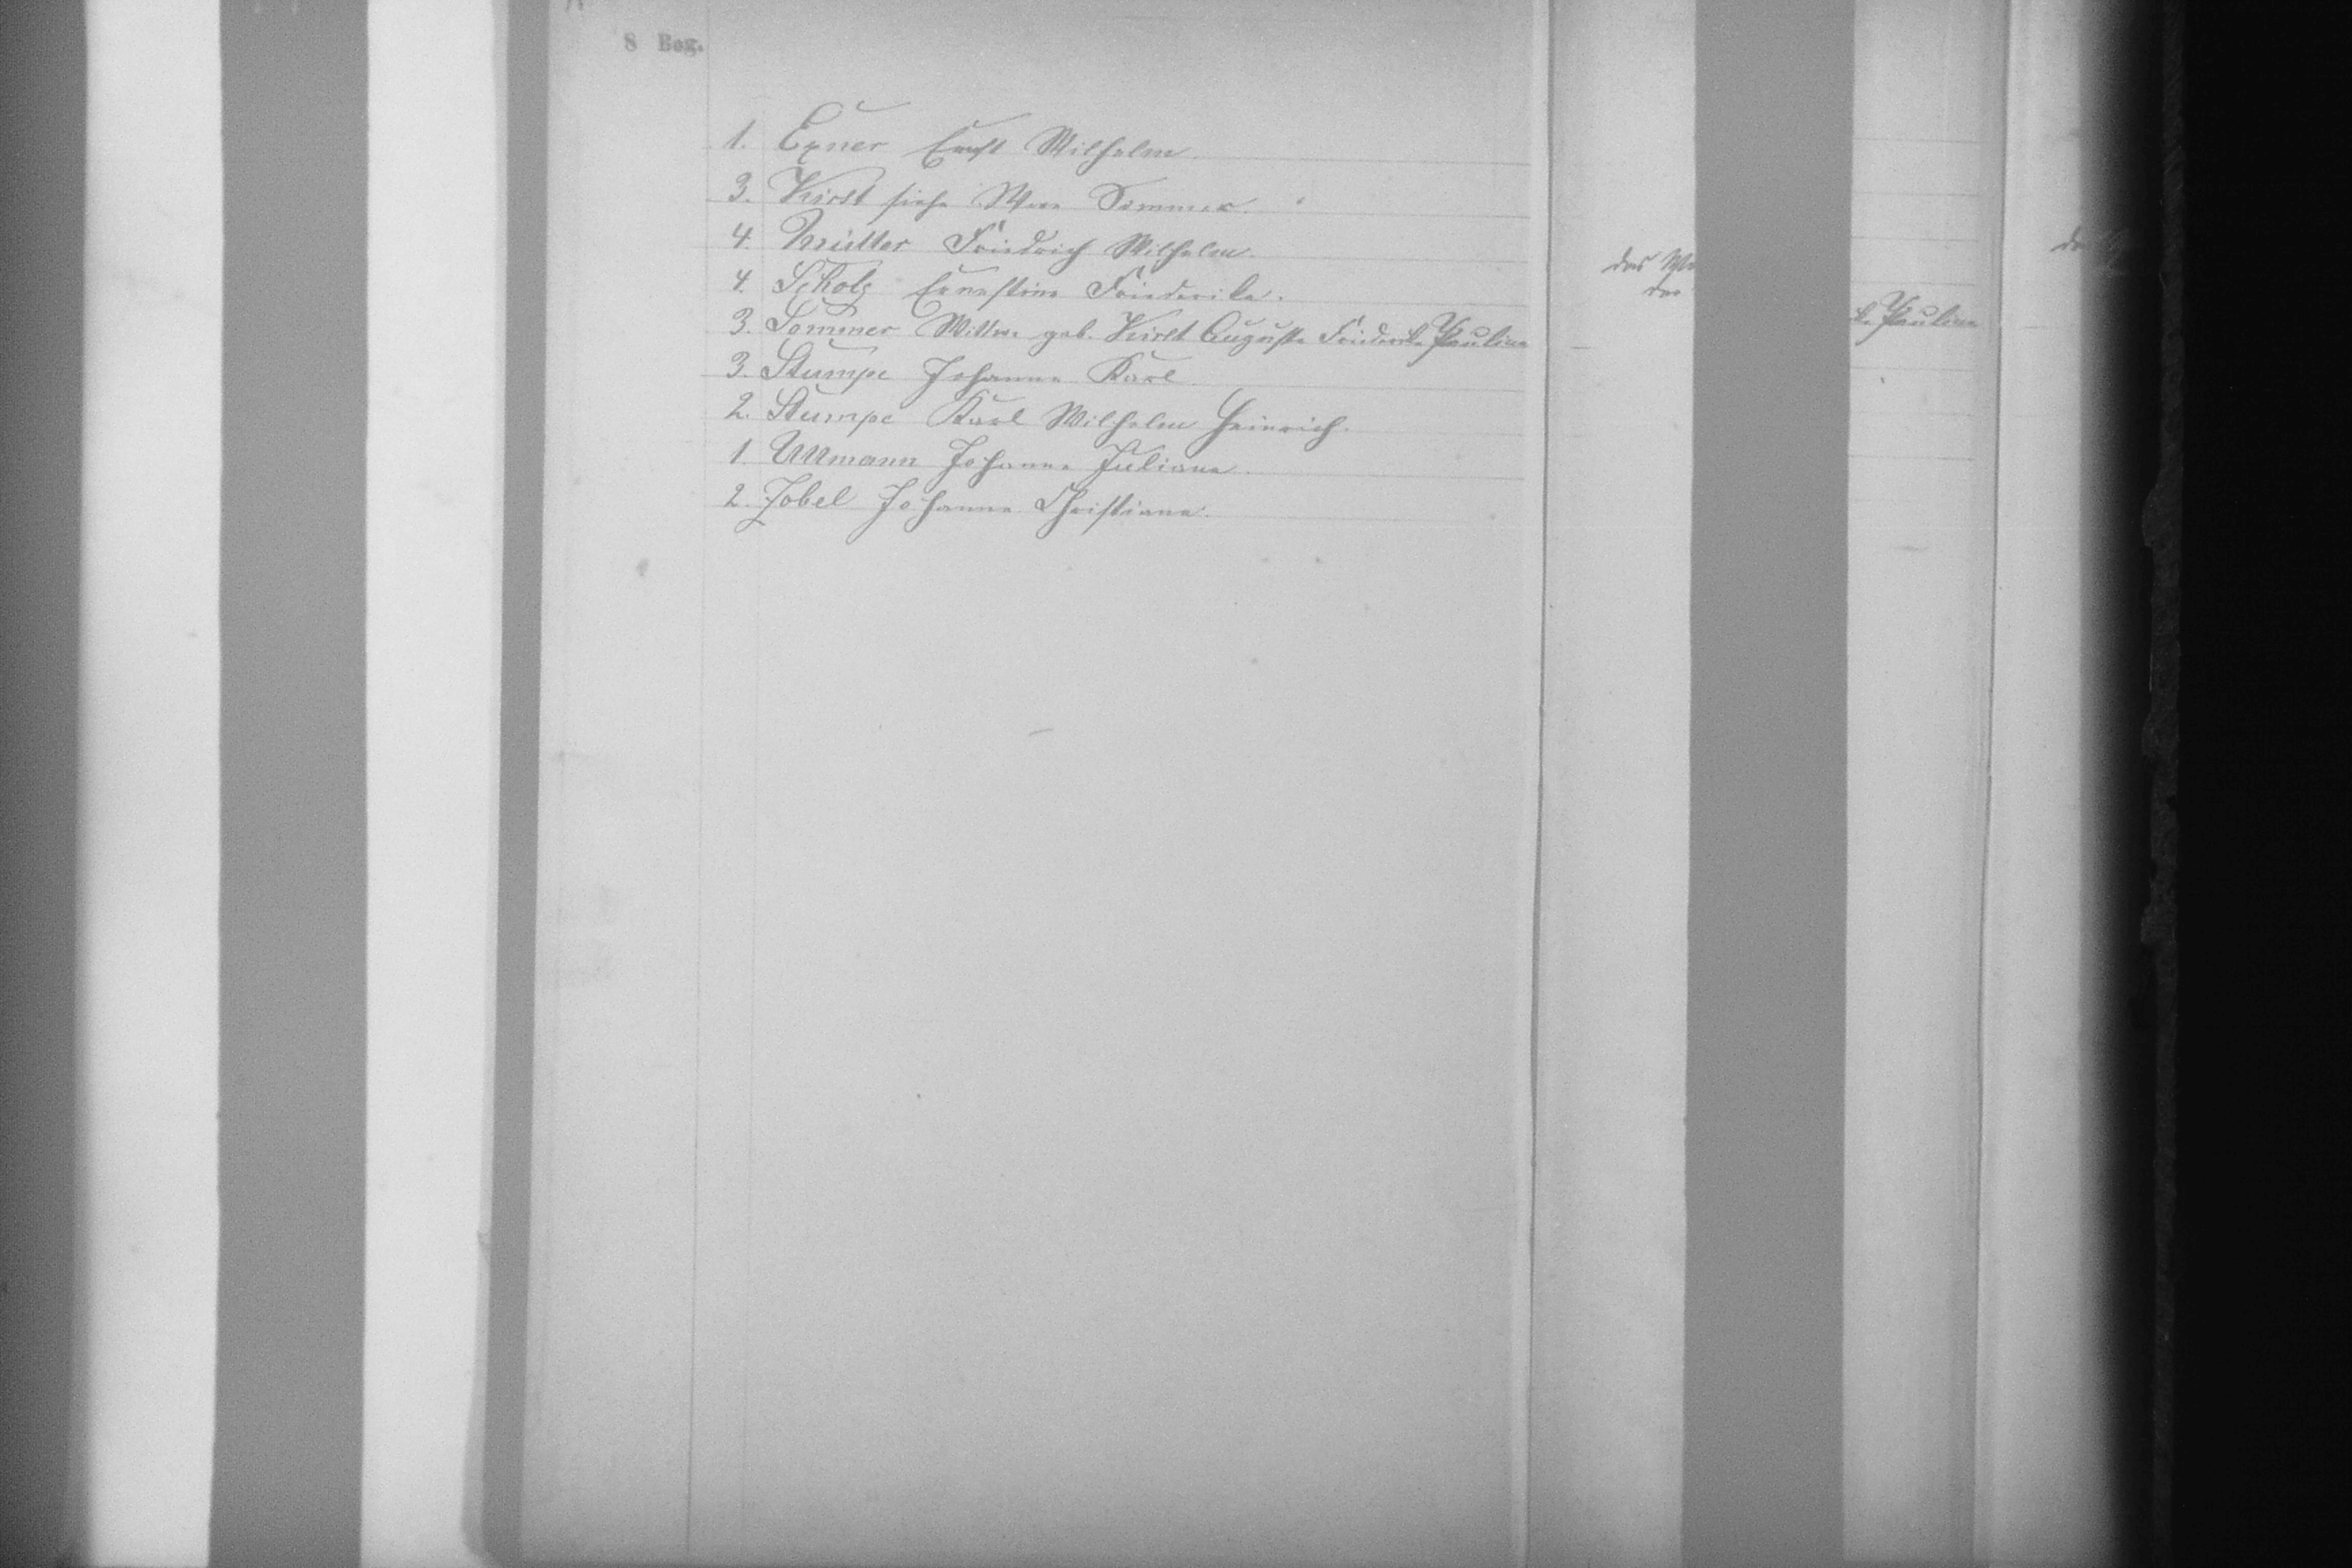 8 Bog.
1. Exner Ernst Wilhelm
3. Kirlt siehe Wwe Sommer.
4. Müller Friedrich Wilhelm.
4. Scholz Ernestine Friederike.
3. Sommer Wittwe geb. Kirlt Auguste Friederike Pauline
3. Stumpe Johanne Karl
2. Stumpe Karl Wilhelm Heinrich.
1. Ullmann Johanne Juliane
2. Zobel Johanne Christiane.
das
der
ke Pauline